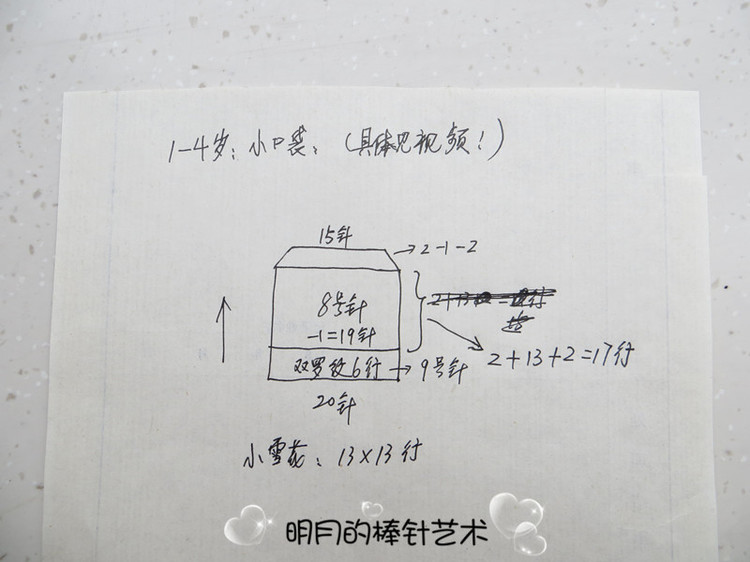 1-4岁：小口袋：（具体见视频！）
15针
→2-1-2
8号针
-1=19针
2+13+2=17行
双罗纹6行→9号针
20针
小雪花：13×13行
明月的棒针艺术